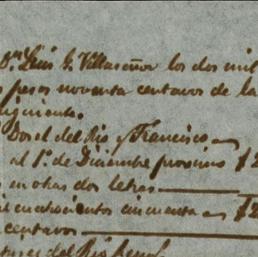 Dn Luis G. Villaseñor los dos mil
pesos noventa centavos de la
siguiente.
Dorel del Rio y Francisco
al 1º de Diciembre proximo $2
en otras dos letras
mil cuatrocientos cincuenta $2
centavos
del Rio